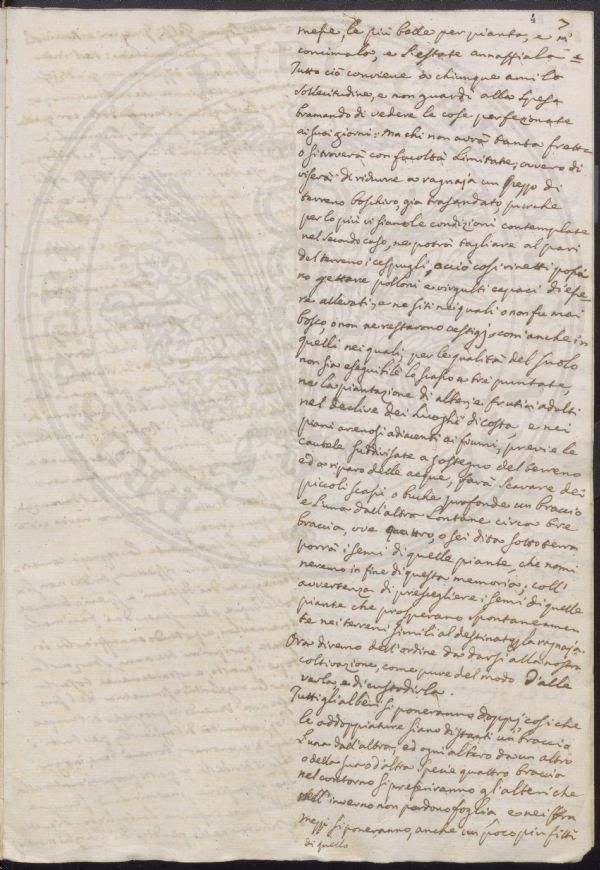 4
7
mese, le più belle per pianta, e si
concimalo, e l'estate annaffiala =
Tutto ciò conviene a chiunque ami la
sollecitudine, e non guardi alla spesa
bramando di vedere le cose perfezionate
ai suoi giorni: ma chi non avrà tanta fretta
o si troverà con facoltà limitate, ovvero di
viserà di ridurre a ragnaja un pezzo di
terreno boschivo, già trasandato, purche
per lo più vi siano le condizioni contemplate
nel secondo caso, ne potrà tagliare al pari
del terreno i cespugli, acciò così rinetti possa
no gettare polloni e virgulti capaci di esse
re allevati, e ne siti nei quali o non fu mai
bosco, o non ne restarono vestigj, o com'anche in
quelli nei quali, per le qualità del suolo
non sia eseguibile lo scasso a tre puntate,
ne la piantazione di alberi e frutici adulti
nel declive dei luoghi di costa, e nei
piani arenosi adiacenti ai fiumi, previe le
cautele suddivisate a sostegno del terreno
ed a riparo delle acque, farà scavare dei
piccoli scassi o buche profonde un braccio
e l'una dall'altra lontane circa tre
braccia, ove quattro, o sei dita sottoterra
porrà i semi di quelle piante, che nomi
neremo in fine di questa memoria; coll'
avvertenza di presegliere i semi di quelle
piante che prosperano spontaneamen
te nei terreni simili al destinato per la ragnaja.
Ora diremo dell'ordine da darsi alla nostra
coltivazione, come pure del modo d'alle
varla, e di custodirla.
Tutti gli alberi si poneranno doppj, così che
le addoppiature siano distanti un braccio
l'una dall'altra, ed ogni albero da un altro
o della sua o d'altra specie quattro braccia
nel contorno si preferiranno gl'alberi che
nell'inverno non perdono foglia, e nei
mezzi si poneranno, anche un poco più fitti
di quello